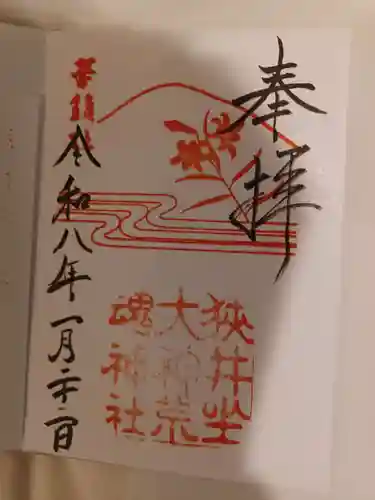 奉拝
狭井坐
大神荒
魂神社
華鎮社
令和八年一月二十二日